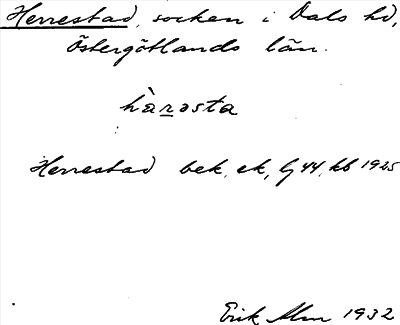 Herrestad, socken i Dals hd,
Östergötlands län.
hàrǝsta
Herrestad bek, ek, lj 44, kb 1925
Erik Alm 1932